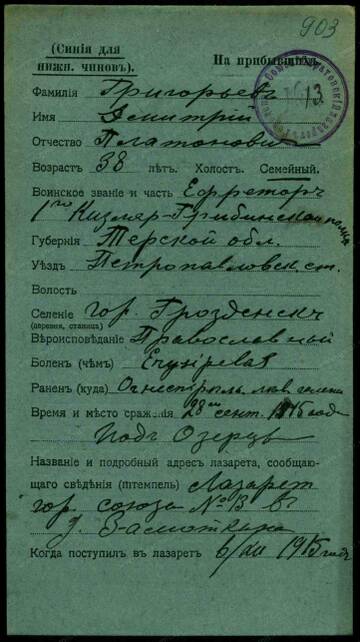 903
(Синія для
нижн. чиновъ).
На прибывшихъ.
13
Фамилія Григорьевъ
Имя Дмитрій
Отчество Платоновичъ
Возрастъ 38 лѣтъ. Холост. Семейный.
Воинское званіе и часть Ефрейторъ
1го Кизляр-Гребинской полка
Губернія Терской обл.
Уѣздъ Петропавловск. ст.
Волость
Селеніе гор. Грозденскъ
(деревня, станица)
Вѣроисповѣданіе Православный
Боленъ (чѣмъ) Erysipelas
Раненъ (куда) Огнестрѣльн. лев.
Время и мѣсто сраженія 28го сент. 1915 года
подъ Озерцы
Названіе и подробный адресъ лазарета, сообщаю-
щаго свѣдѣнія (штемпель) Лазарет
гор. союза № 13 в
д. Замоткина
Когда поступилъ въ лазаретъ 6/XII 1915 года